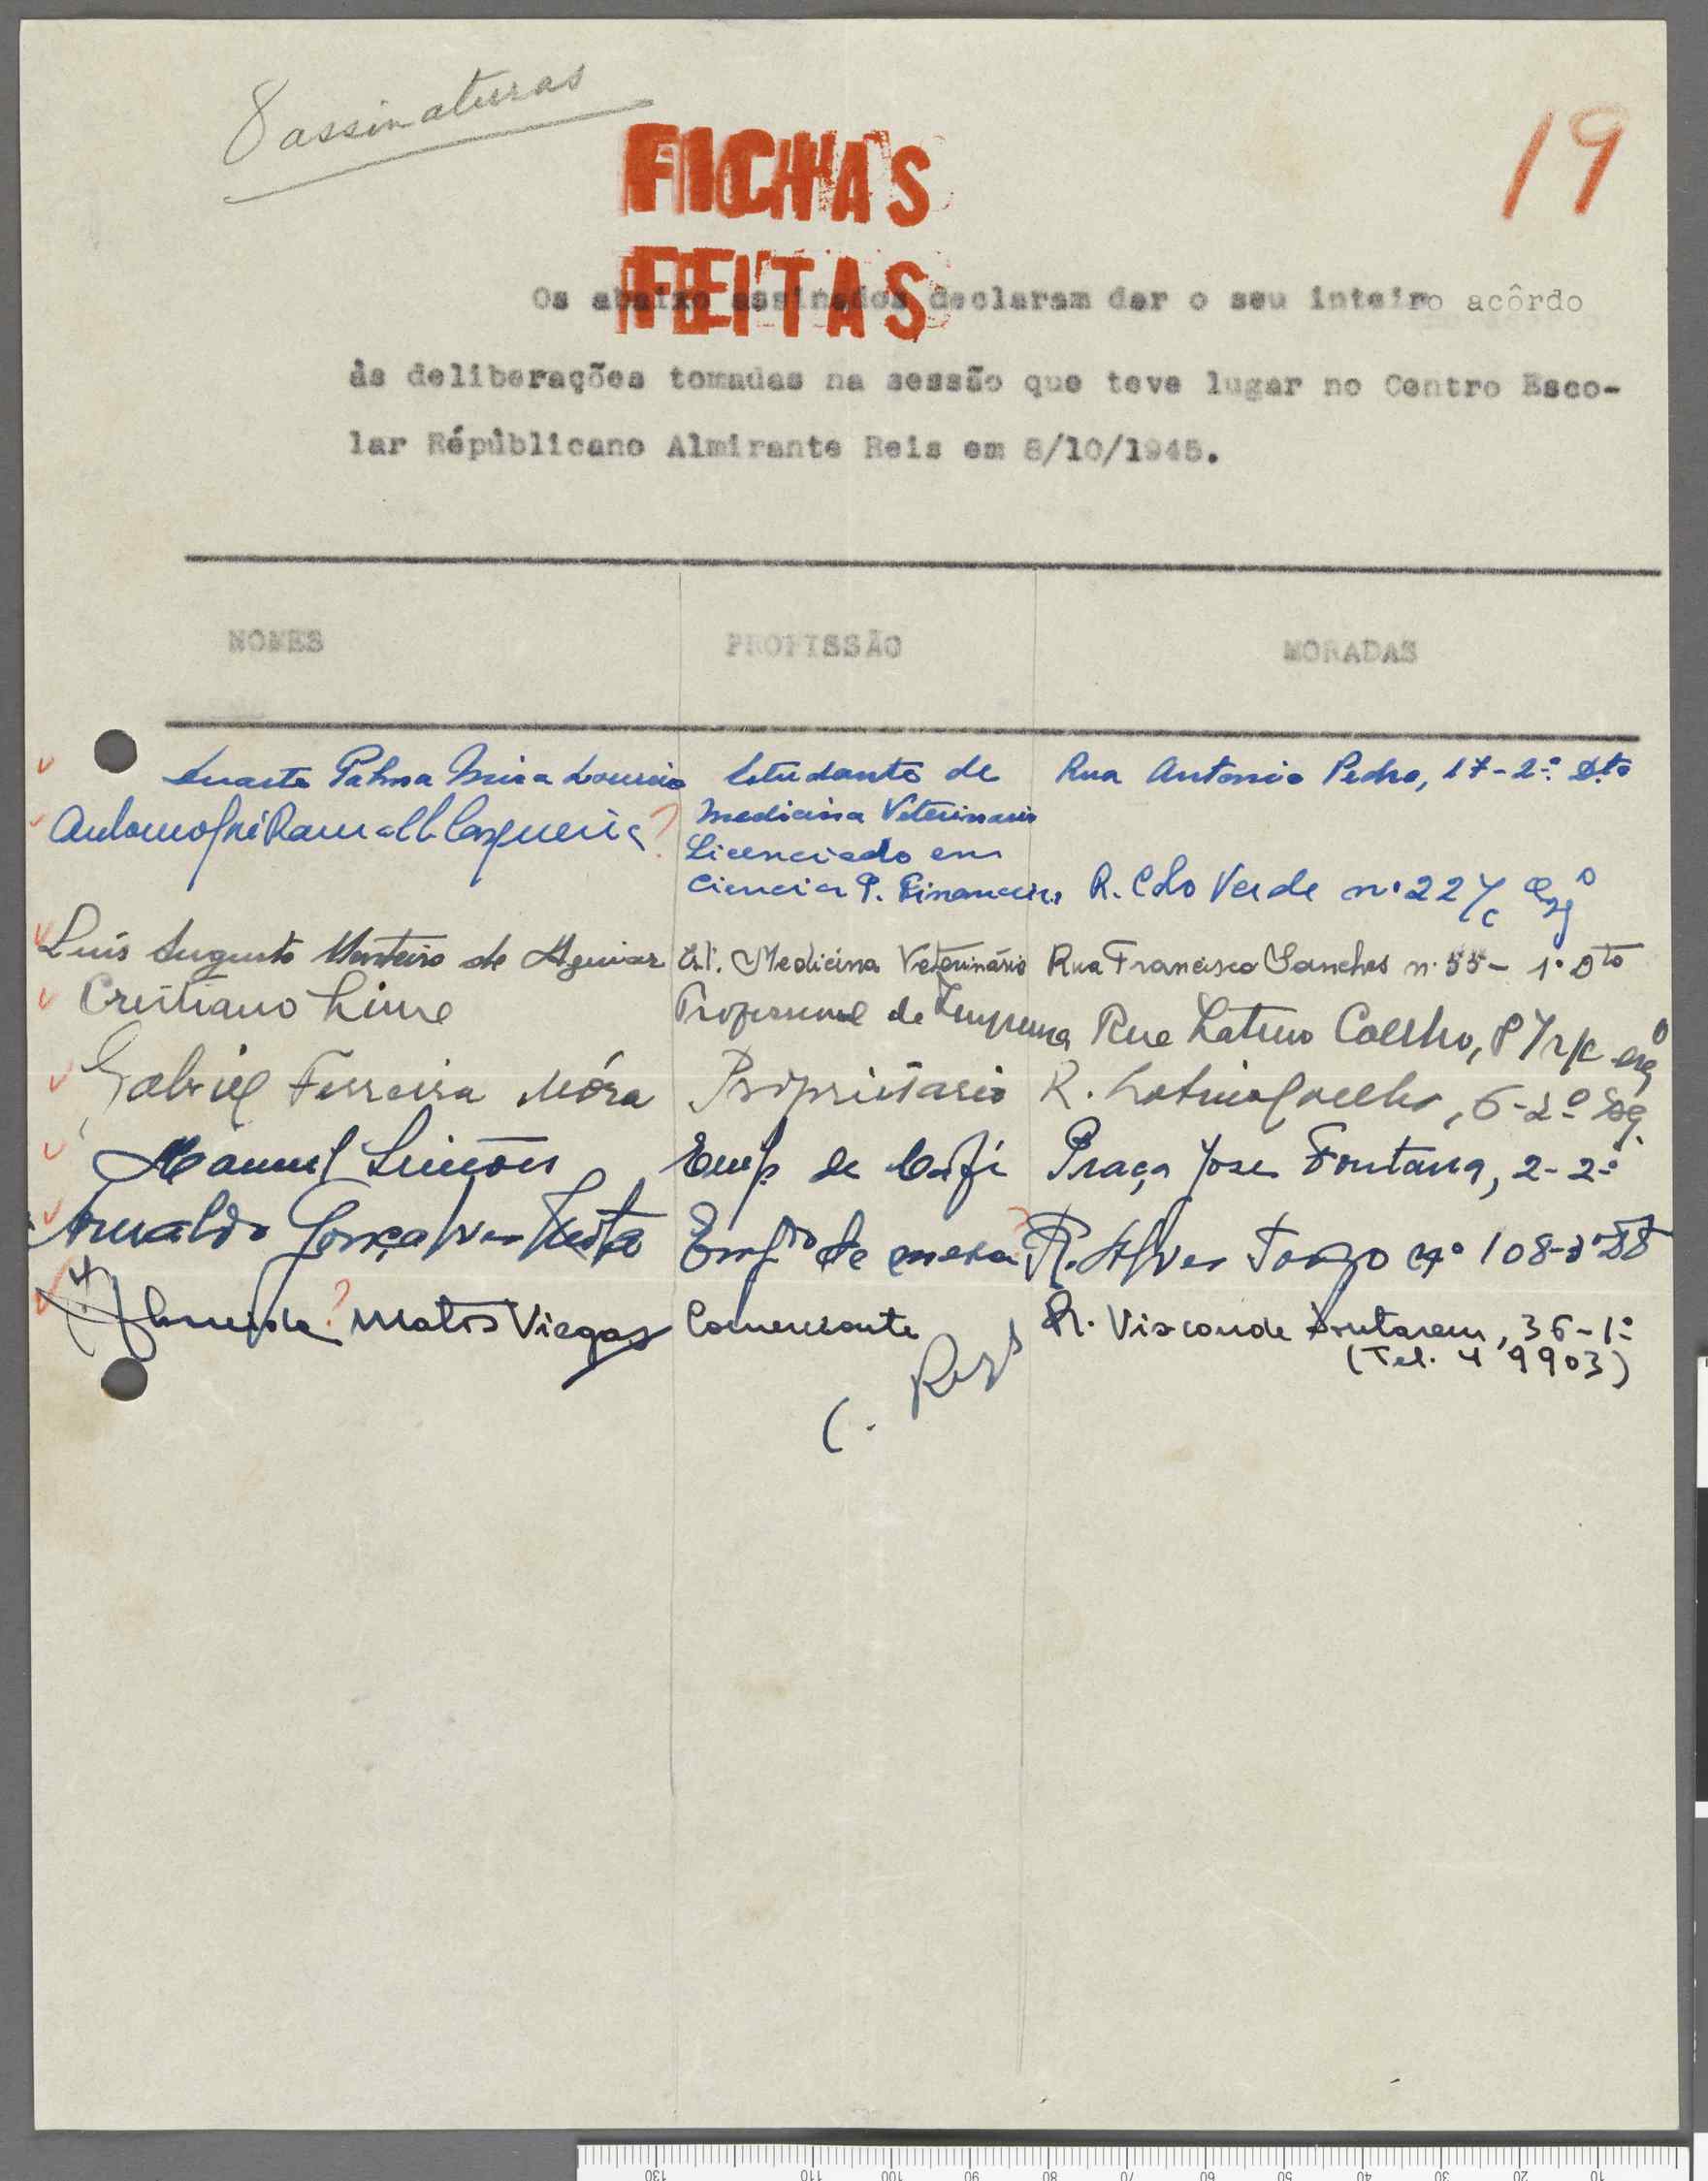 8 assinaturas
19
FICHAS
FEITAS
Os abaixo assinados declaram dar o seu inteiro acôrdo
às deliberações tomadas na sessão que teve lugar no Centro Esco-
lar Républicano Almirante Reis em 8/10/1945.
NOMES PROFISSÃO MORADAS
Duarte Palma Mira Loureiro Estudante de Rua Antonio Pedro, 17-2º. D.to
Medicina Veterinaria
? Licenciado em
Ciencias P. Financeira R. C do Verde nº 22 r/c Esqº
Luís Augusto Monteiro de Aguiar Est. Medicina Veterinário Rua Francisco Sanches n. 55 - 1º Dto
Cristiano Lima Profissional de Imprensa Rua Latino Coelho, 87 r/c esqº
Gabriel Ferreira Móra Proprietario R. Latino Coelho, 6-2º Esq.
Manuel Simões Emp. de Café Praça Jose Fontana, 2-2º
Arnaldo Gonçalves Emp.do de mesa ? R. Alves Torgo nº 108-3º Dt
Almeida ? Matos Viegas Comerciante R. Visconde Santarem, 36-1º
(Tel. 4 9903)